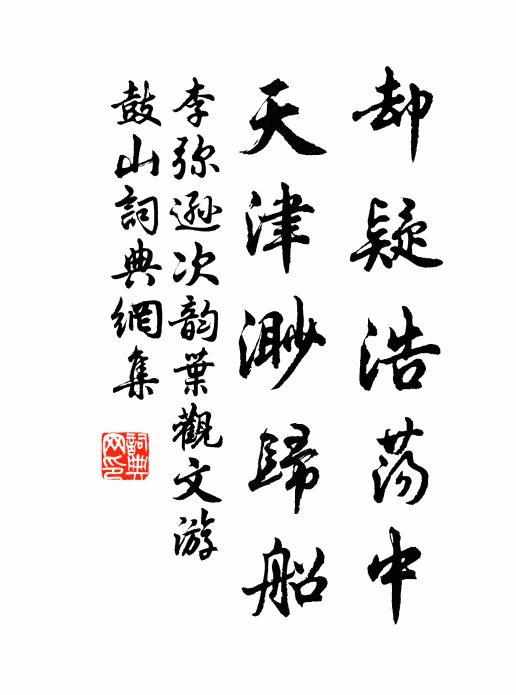 却疑浩荡中
天津渺歸船
李弥遜次韵葉觀文游
鼓山詞典網集
詞典网印